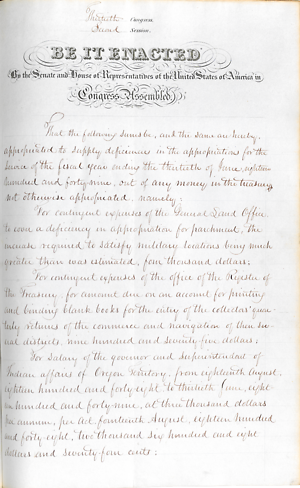 Thirtieth Congress.
Second Session.
BE IT ENACTED
By the Senate and House of Representatives of the United States of America in
Congress Assembled,
That the following sums be, and the same are hereby,
appropriated to supply deficiencies in the appropriations for the
service of the fiscal year ending the thirtieth of June, eighteen
hundred and forty-nine, out of any money in the treasury
not otherwise appropriated, namely:
For contingent expenses of the General Land Office
to cover a deficiency in appropriation for parchment, the
increase required to satisfy military locations being much
greater than was estimated, four thousand dollars;
For contingent expenses of the office of the Register of
the Treasury, for amount due on an account for printing
and binding blank books for the entry of the collectors' quar-
terly returns of the commerce and navigation of their se-
veral districts, nine hundred and seventy-five dollars;
For salary of the governor and superintendent of
Indian affairs of Oregon territory, from eighteenth August,
eighteen hundred and forty-eight, to thirtieth June, eight-
een hundred and forty-nine, at three thousand dollars
per annum, per act, fourteenth August, eighteen hundred
and forty-eight, two thousand six hundred and eight
dollars and seventy-four cents;